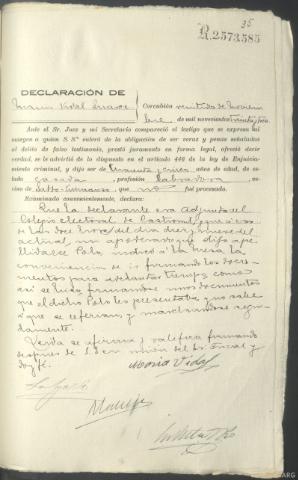 35
R.2573585
DECLARACIÓN DE
María Vidal Suárez
Corcubión veintidos de Noviem
bre de mil novecientos treinta y tres
Ante el Sr. Juez y mi Secretaría compareció el testigo que se expresa al
margen a quien S. Sª enteró de la obligación de ser veraz y penas señaladas
al delito de falso testimonio, prestó juramento en forma legal, ofreció decir
verdad, se le advirtió de lo dispuesto en el artículo 446 de la ley de Enjuicia-
miento criminal, y dijo ser de cincuenta y cinco años de edad, de es-
tado casada profesión labradora ve-
cino de que no fué procesado.
Examinado convenientemente, declara:
Que la declarante era Adjunto del
Colegio electoral de y a eso
de las doce horas del día diez y nueve del
actual, un apoderado que dijo ape-
llidarse Pola indicó a la Mesa la
conveniencia de ir firmando los docu-
mentos para adelantar tiempo, como
así se hizo firmándose unos documentos
que el dicho Pola les presentaba, que no sabe
a que se referían, y marchándose segui-
damente.
Leída se afirma y ratifica firmando
después de S. Sª en unión del Sr. Fiscal y
doy fé.
María Vidal